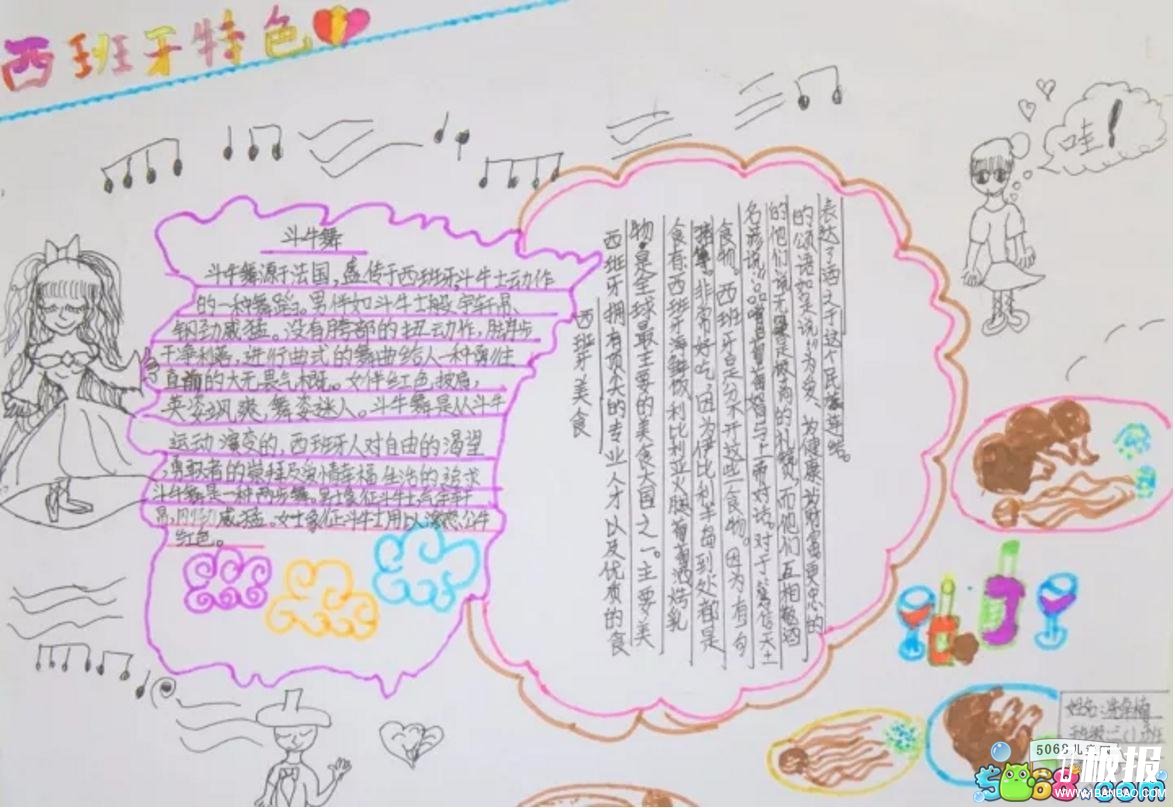 西班牙特色
哇!
斗牛舞
斗牛舞源于法国,盛传于西班牙,斗牛士动作
的一种舞蹈。男伴如斗牛士般气宇轩昂、
钢劲威猛。没有胯部的扭动作,脚步
干净利落,进行曲式的舞曲给人一种勇往
直前的大无畏气概。女伴红色披肩,
英姿飒爽,舞姿迷人。斗牛舞是从斗牛
运动演变的,西班牙人对自由的渴望
勇敢者的崇拜及爱情幸福生活的追求
斗牛舞是一种两步舞。男士象征斗牛士气宇轩
昂,刚劲威猛。女士象征斗牛士用以激怒公牛
红色。
西班牙美食
西班牙拥有顶尖的专业人才以及优质的食
物,是全球最主要的美食大国之一。主要美
食有西班牙海鲜饭利比利亚火腿葡萄酒烤乳
猪等。非常好吃,因为伊比利半岛到处都是
食物。西班牙是分不开这些食物。因为有句
名言说:
的他们说无
的颂语如果说:“为爱、为健康为财富更忠的
表达了酒之于这个民族
姓名:
班级三(1)班
5068儿童网
5068.com
板报
WWW.1BANBAO.COM